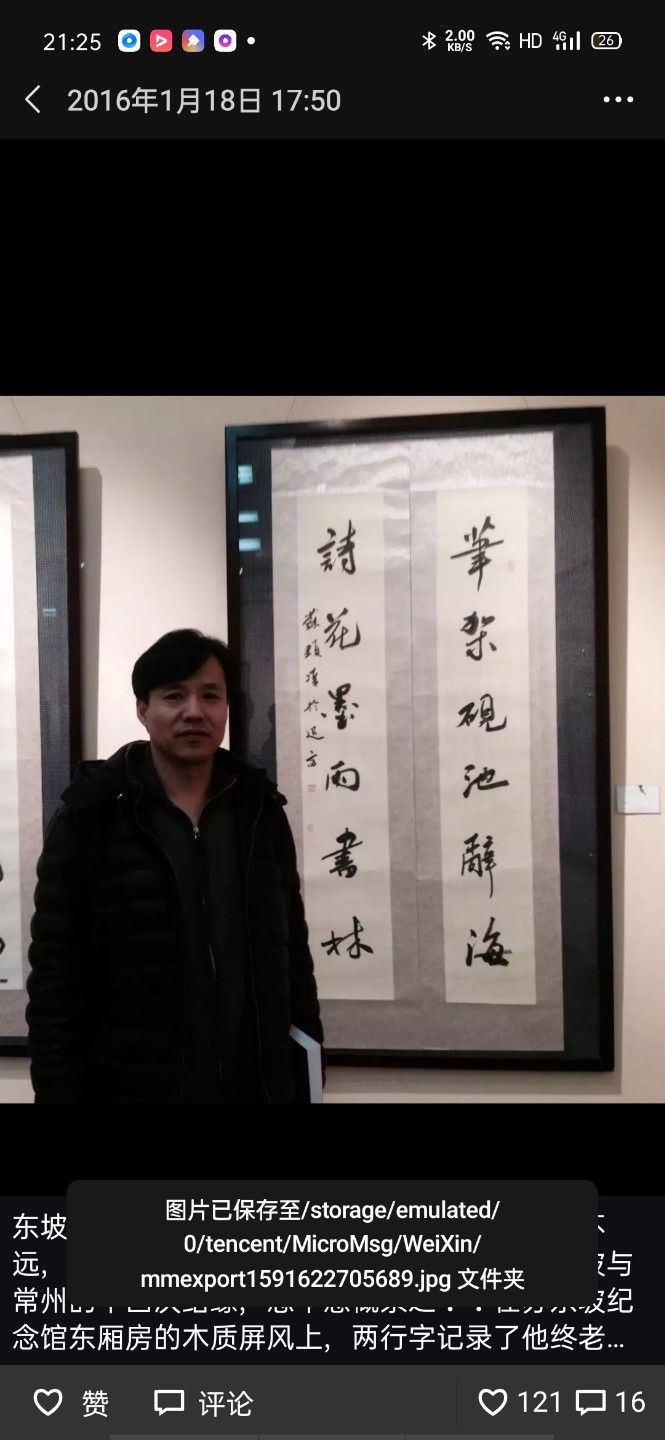 21:25
2.00
KB/S
HD
4G
26
2016年1月18日 17:50
筆架硯池辭海
詩花墨雨書林
图片已保存至/storage/emulated/
0/tencent/MicroMsg/WeiXin/
mmexport1591622705689.jpg 文件夹
东坡
远，与
常州的
念馆东厢房的木质屏风上，两行字记录了他终老...
赞
评论
121
16